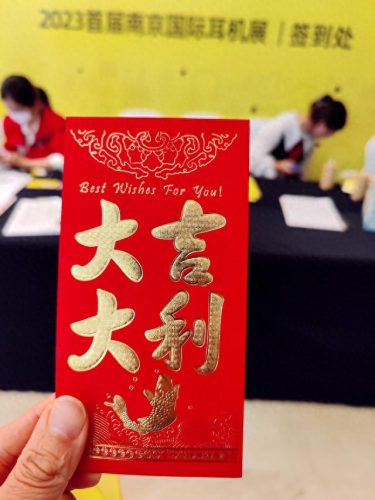 2023首届南京国际耳机展 | 签到处
Best Wishes For You!
大吉
大利